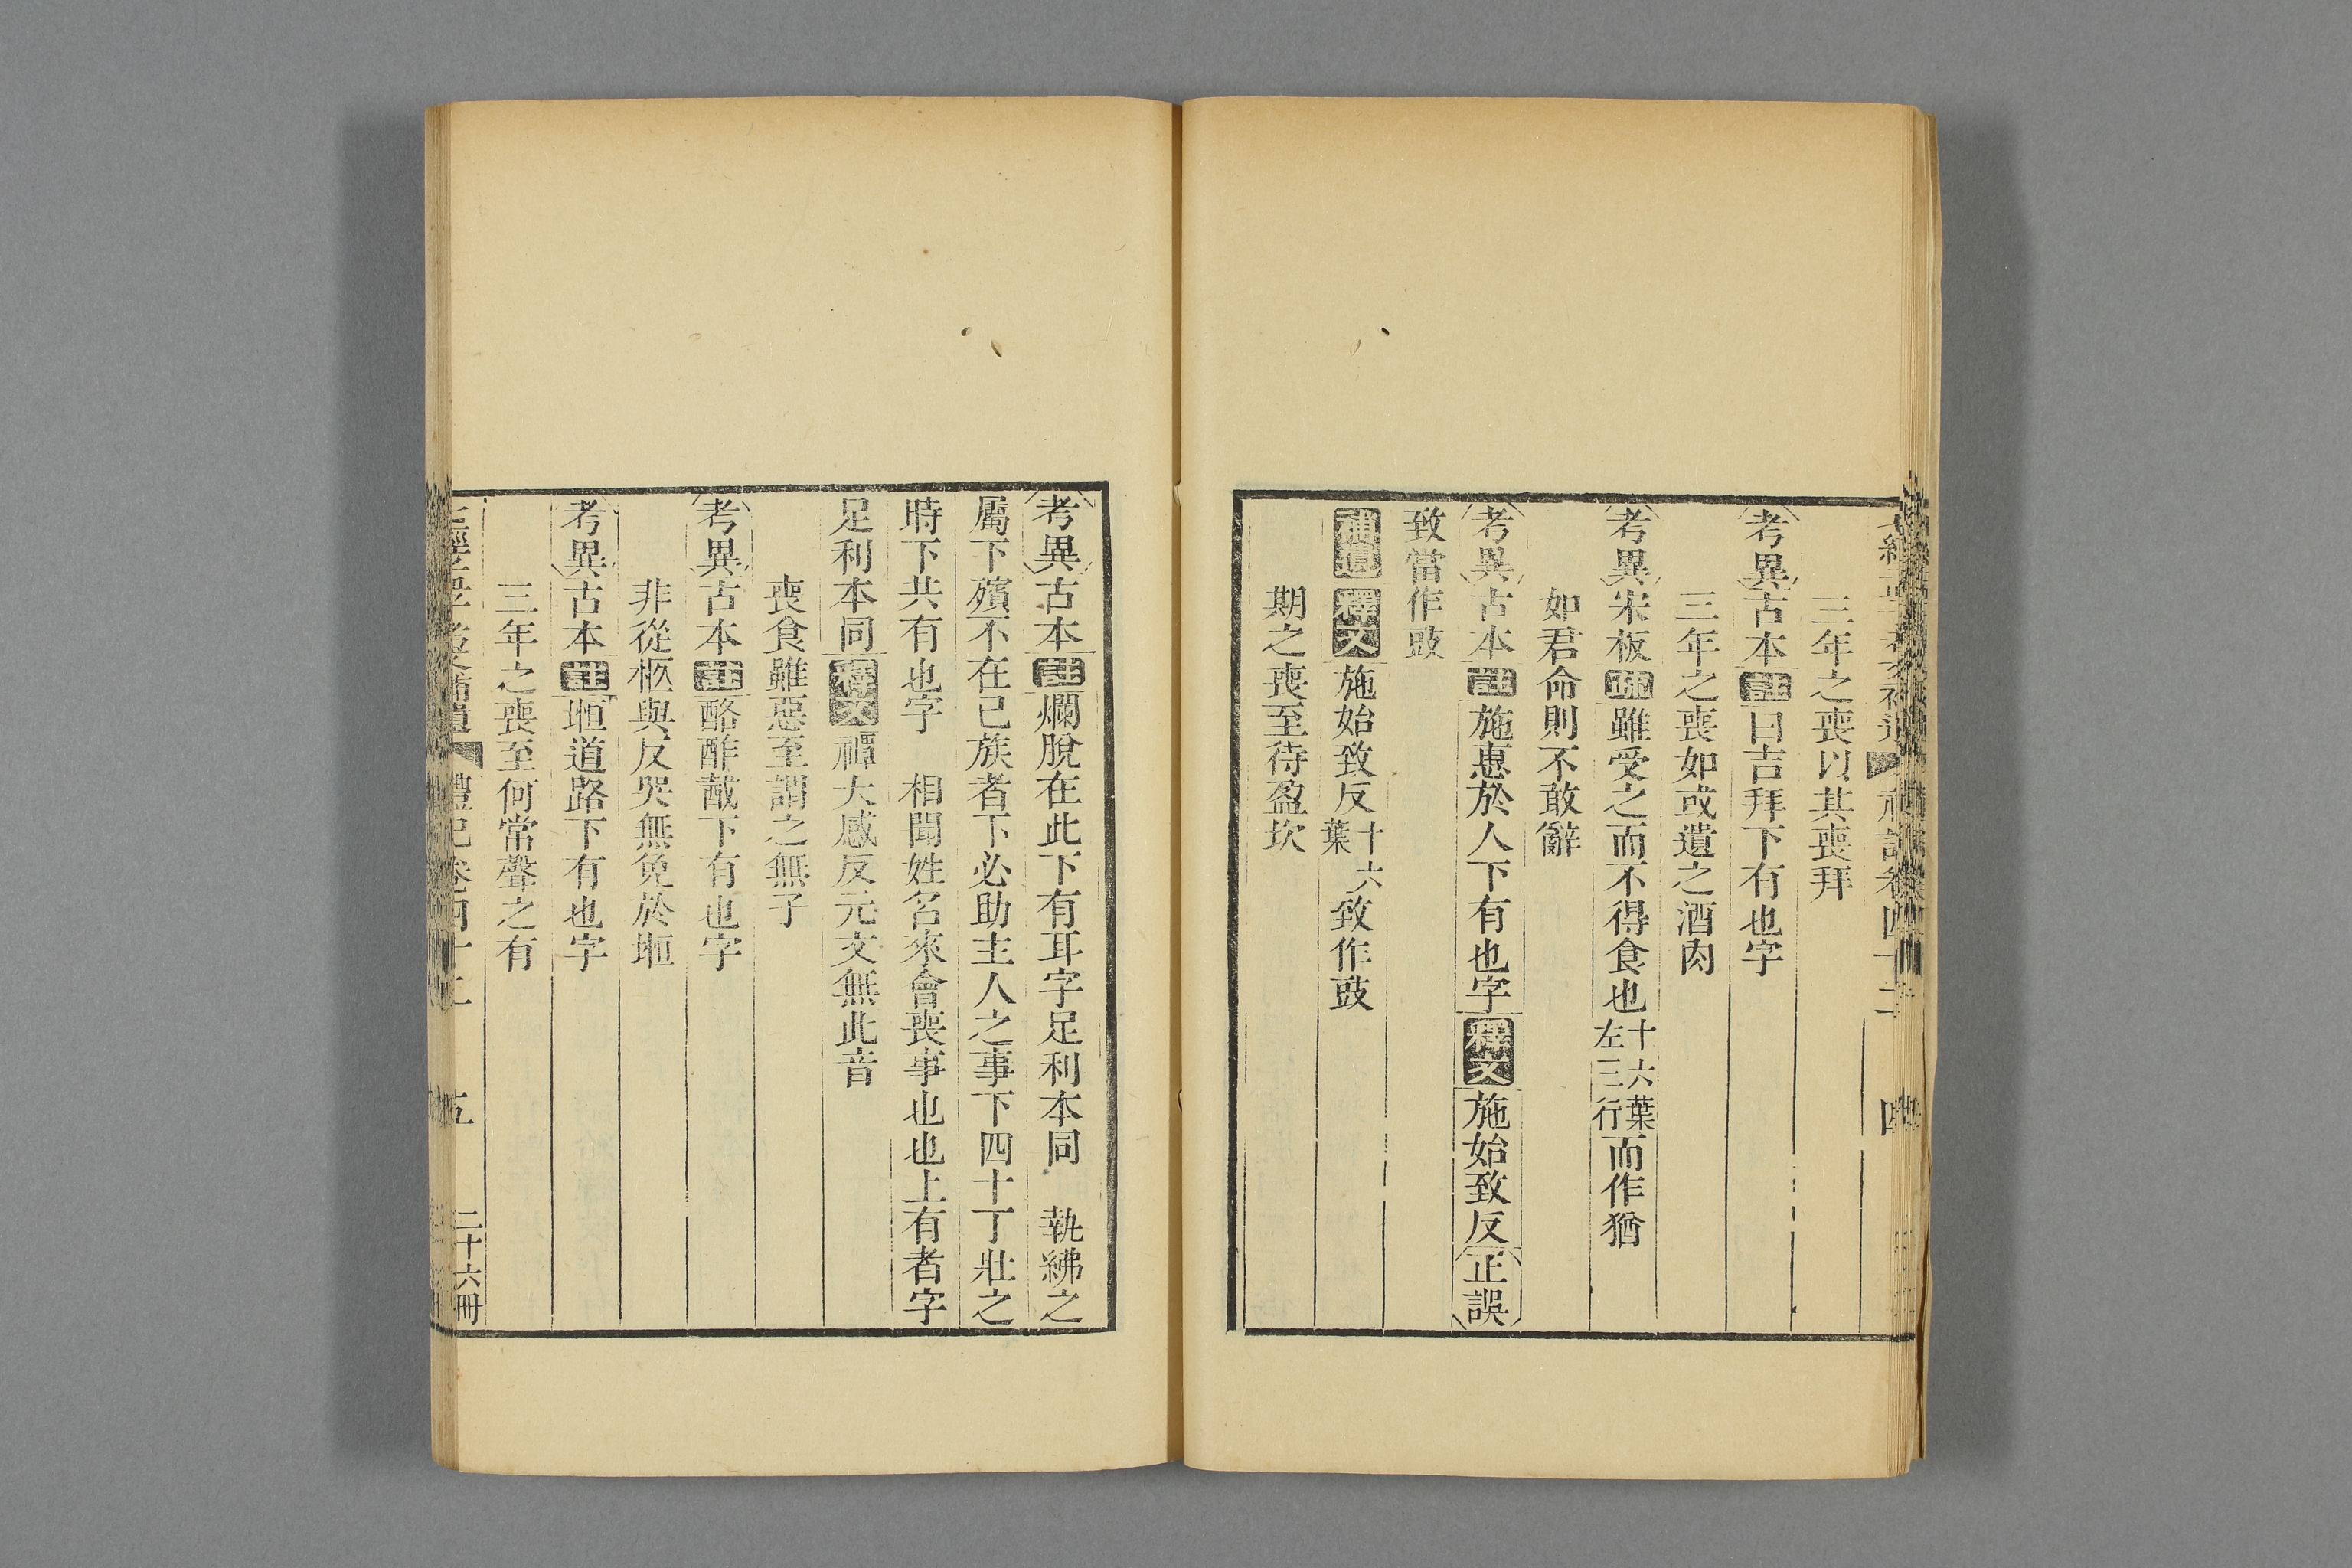 三年之喪以其喪拜
考異古本註曰吉拜下有也字
三年之喪如或遺之酒肉
考異宋板疏雖受之而不得食也十六葉左三行而作猶
如君命則不敢辭
考異古本註施惠於人下有也字釋文施始致反正誤
致當作豉
補遺釋文施始致反十六葉致作豉
期之喪至待盈坎
考異古本註爛脫在此下有耳字足利本同　執紼之
屬下殯不在己族者下必助主人之事下四十丁壯之
時下共有也字　相聞姓名來會喪事也也上有者字
足利本同釋文禫大感反元文無此音
喪食雖惡至謂之無子
考異古本註酪酢胾下有也字
非從柩與反哭無免於堩
考異古本註堩道路下有也字
三年之喪至何常聲之有
七經孟子考文補遺　禮記卷四十二　五　二十六冊